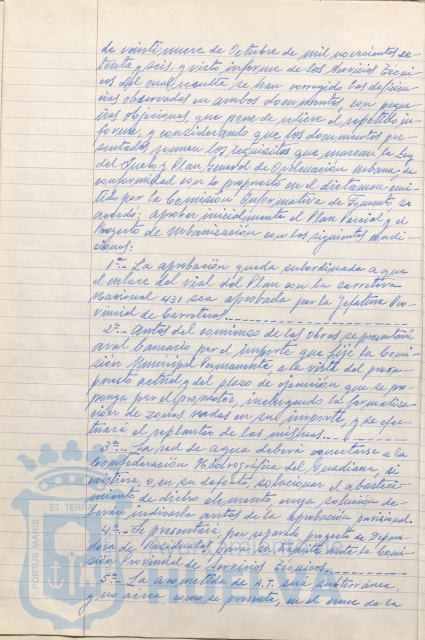 de veintinueve de Octubre de mil novecientos se-
tenta y seis, y visto informe de los Servicios Técni-
cos del cual resulta se han corregido las deficien-
cias observadas en ambos documentos, con peque-
ñas objeciones, que pone de relieve el repetido in-
forme, y considerando que los documentos pre-
sentados reunen los requisitos que marcan la Ley
del Suelo y Plan General de Ordenación urbana, de
conformidad con lo propuesto en el dictamen emi-
tido por la Comisión Informativa de Fomento se
acordó: aprobar inicialmente el Plan Parcial y el
Proyecto de Urbanización con las siguientes condi-
ciones:
1ª.- La aprobación queda subordinada a que
el enlace del vial del Plan con la carretera
Nacional 431 sea aprobada por la Jefatura Pro-
vincial de Carreteras.
2ª.- Antes del comienzo de las obras se presentará
aval bancario por el importe que fije la Comi-
sión Municipal Permanente, a la vista del presu-
puesto actual y del plazo de ejecución que se pro-
ponga por el promotor, incluyendo la
ción de zonas verdes en su importe, y se efec-
tuará el replanteo de las mismas.
3ª.- La red de agua deberá conectarse a la
Confederación Hidrográfica del Guadiana, si
existiera, o, en su defecto, solucionar el abasteci-
miento de dicho elemento cuya solución de-
berá indicarla antes de la aprobación provisional.
4ª.- Se presentará, por separado, proyecto de Depura-
dora de Residuales para su trámite ante la Comi-
sión Provincial de Servicios Técnicos.
5ª.- La acometida de A.T. será subterránea,
y no aérea como se presenta, en el cruce de la
PORTUS MARIS
ET TERRAE